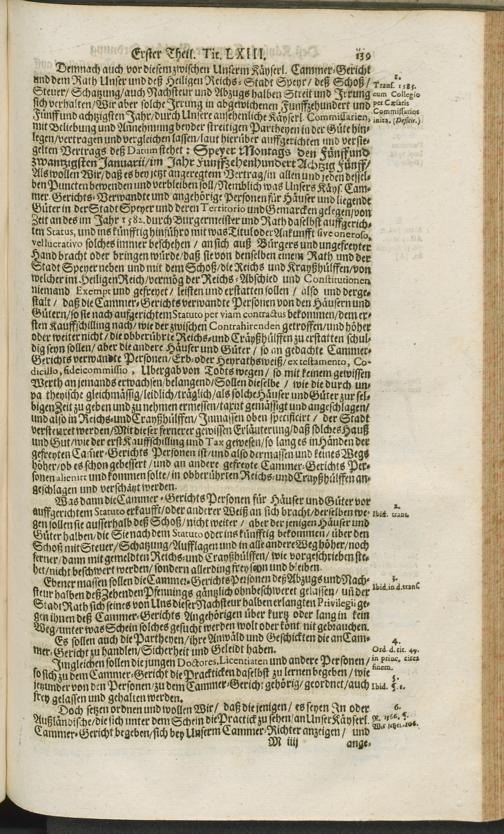 Erster Theil. Tit. LXIII. 139
Demnach auch vor diesem zwischen Unserm Käyserl. Cammer-Gericht
und dem Rath Unser und deß Heiligen Reichs-Stadt Speyr/ deß Schoß/
Steuer/ Schatzung/ auch Nachsteur und Abzugs halben Streit und Irrung
sich verhalten/ Wir aber solche Irrung in abgewichenen Fünffzehundert und
Fünff und achtzigsten Jahr/ durch Unsere ansehenliche Käyserl. Commissarien,
mit Beliebung und Annehmung beyder streitigen Partheyen in der Güte hin-
legen/ vertragen und vergleichen lassen/ laut hierüber auffgerichten und versie-
gelten Vertrags deß Datum stehet: Speyer Montags den Fünff und
zwantzigsten Januarii/ im Jahr Fünffzehenhundert Achtzig Fünff/
Als wollen Wir/ daß es bey jetzt angeregtem Vertrag/ in allen und jeden dessel-
ben Puncten bewenden und verbleiben soll/ Nemblich was Unsers Käys. Cam-
mer-Gerichts-Verwandte und angehörige Personen für Häuser und liegende
Güter in der Stadt Speyr und deren Territorio und Gemarcken gelegen/ von
Zeit an des im Jahr 1582. durch Burgermeister und Rath daselbst auffgerich-
ten Status, und ins künfftig hinführo mit was Titul oder Ankunfft sive oneroso,
vel lucrativo solches immer beschehen/ an sich auß Bürgers und ungefreyter
Hand bracht oder bringen würde/ daß sie von denselben einem Rath und der
Stadt Speyer neben und mit dem Schoß/ die Reichs und Kraysshülffen/ von
welcher im Heiligen Reich/ vermög der Reichs-Abschied und Constitutionen
niemand Exempt und gefreyet/ leisten und erstatten sollen/ also und derge-
stalt/ daß die Cammer-Gerichts verwandte Personen von den Häusern und
Gütern/ so sie nach auffgerichtem Statuto per viam contractus bekommen/ dem er-
sten Kauffschilling nach/ wie der zwischen Contrahirenden getroffen/ und höher
oder weiter nicht/ die obberührte Reichs-und Crayßhülffen zu erstatten schul-
dig seyn sollen/ aber die andere Häuser und Güter/ so an gedachte Cammer-
Gerichts verwandte Personen/ Erb-oder Heyrathsweiß/ ex testamento, Co-
dicillo, fideicommisso, Ubergab von Todts wegen/ so mit keinem gewissen
Werth an jemands erwachsen/ belangend/ Sollen dieselbe/ wie die durch un-
partheyische gleichmässig/ leidlich/ träglich/ als solche Häuser und Güter zur sel-
bigen Zeit zu geben und zu nehmen ermessen/ taxirt gemässigt und angeschlagen/
und also in Reichs-und Crayßhülffen/ Inmassen oben specificirt/ der Stadt
versteuret werden/ Mit dieser fernerer gewissen Erläuterung/ daß solches Hauß
und Gut/ wie der erst Kauffschilling und Tax gewesen/ so lang es in Händen der
gefreyten Cammer-Gerichts Personen ist/ und also dermassen und keines Wegs
höher/ ob es schon gebessert/ und an andere gefreyte Cammer-Gerichts Per-
sonen alienirt und kommen solte/ in obberührten Reichs-und Crayßhülffen an-
geschlagen und verschätzt werden.
Was dann die Cammer-Gerichts Personen für Häuser und Güter vor
auffgerichtem Statuto erkaufft/ oder anderer Weiß an sich bracht/ derselben we-
gen sollen sie ausserhalb deß Schoß/ nicht weiter/ aber der jenigen Häuser und
Güter halben/ die Sie nach dem Statuto oder ins künfftig bekommen/ über den
Schoß mit Steuer/ Schatzung/ Aufflagen und in alle andere Weg höher/ noch
ferner/ dann mit gemeldten Reichs-und Crayßhülffen/ wie vorgeschrieben ste-
het/ nicht beschwert werden/ sondern allerding frey seyn und bleiben.
Ebener massen sollen die Cammer-Gerichts Personen deß Abzugs und Nach-
steur halben deß Zehenden Pfennings gäntzlich ohnbeschweret gelassen/ und der
Stadt Rath sich seines von Uns dieser Nachsteur halben erlangten Privilegii ge-
gen ihnen deß Cammer-Gerichts Angehörigen über kurtz oder lang in kein
Weg/ unter was Schein solches gesucht werden wolt oder könt nit gebrauchen.
Es sollen auch die Partheyen/ ihre Anwäld und Geschickten die an Cam-
mer-Gericht zu handlen/ Sicherheit und Geleid haben.
Imgleichen sollen die jungen Doctores, Licentiaten und andere Personen/
so sich zu dem Cammer-Gericht die Practicken daselbst zu lernen begeben/ wie
jetzunder von den Personen/ zu dem Cammer-Gericht gehörig/ geordnet/ auch
frey gelassen und gehalten werden.
Doch setzen ordnen und wollen Wir/ daß die jenigen/ es seyen In oder
Außländische/ die sich unter dem Schein die Practick zu sehen/ an Unser Käyserl.
Cammer-Gericht begeben/ sich bey Unserm Cammer-Richter anzeigen/ und
M iiij ange-
1.
Trans. 1585.
cum Collegio
per Cæsaris
Commissarios
inita. (Desein.)
2.
Ibid. trans.
3.
Ibid. in d. trans.
4.
Ord. d. tit. 49.
in princ. circa
finem.
5.
Ibid. §. 1.
6.
§.